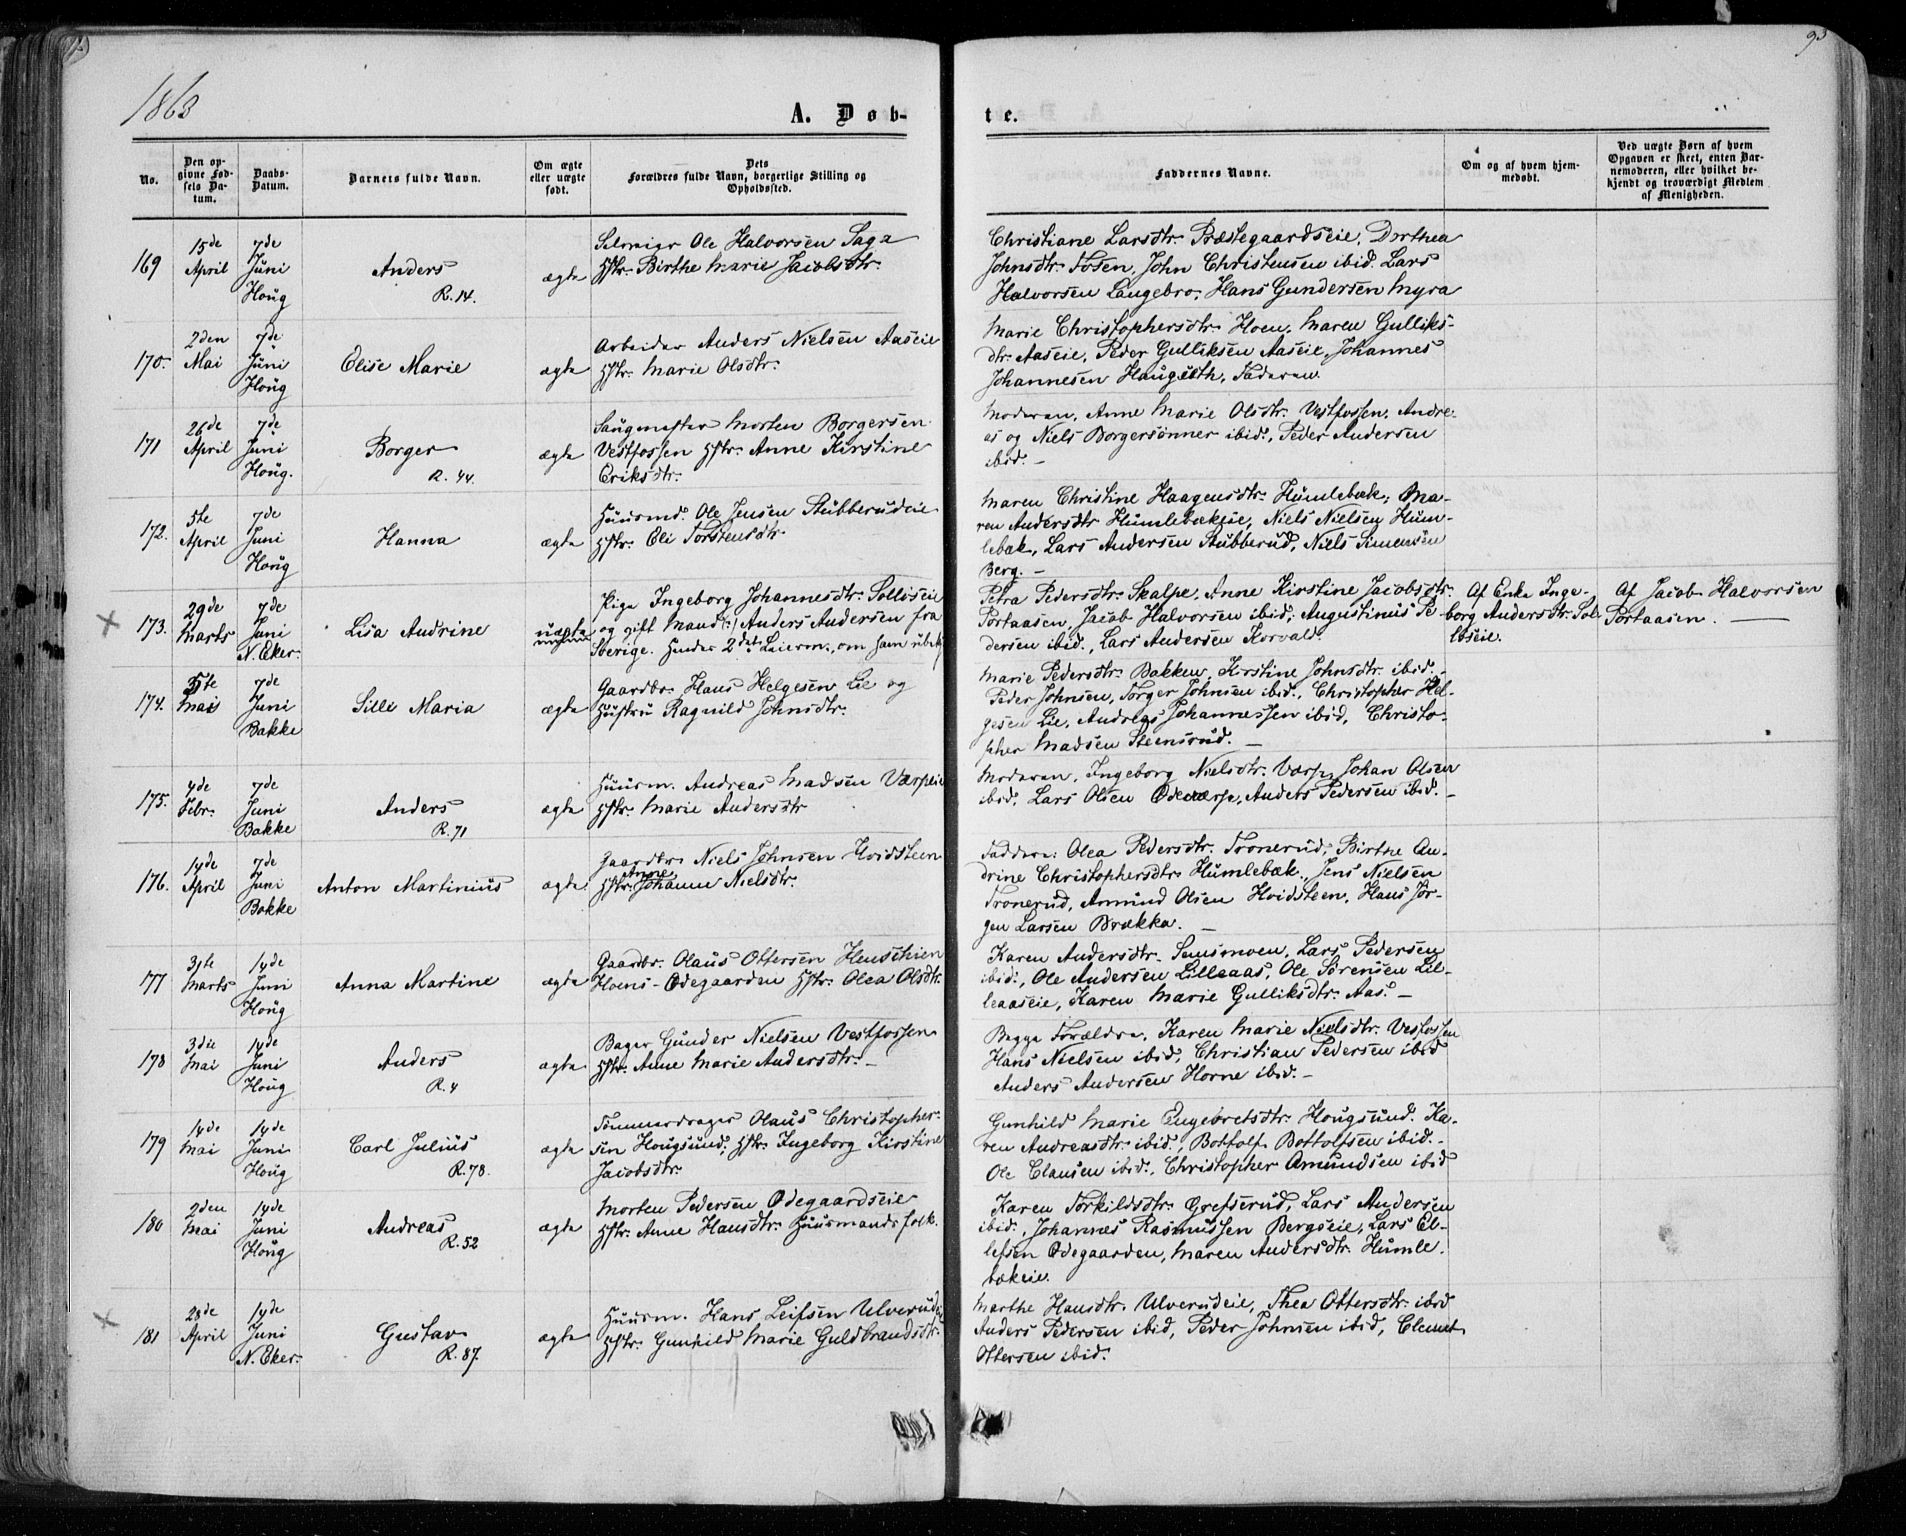 93
1863
A. Døb-
te.
No.
Den op-
givne Fød-
sels Da-
tum.
Daabs-
Datum.
Barnets fulde Navn.
Om ægte
eller uægte
født.
Dets
Forældres fulde Navn, borgerlige Stilling og
Opholdssted.
Faddernes Navne.
Om og af hvem hjem-
medøbt.
Ved uægte Børn af hvem
Opgaven er skeet, enten Bar-
nemoderen, eller hvilket be-
kjendt og troværdigt Medlem
af Menigheden.
169
15de
April
7de
Juni
Houg
Anders
R. 14.
ægte
Selveier Ole Halvorsen Saga
Hstr. Birthe Marie Jacobsdtr.
Christiane Larsdtr. Præstegaardseie, Dorthea
Johnsdtr. Fosen, John Christensen ibid. Lars
Halvorsen Langebro, Hans Gundersen Myra
170.
2den
Mai
7de
Juni
Houg
Elise Marie
ægte
Arbeider Anders Nielsen Aaseie
Hstr. Marie Olsdtr.
Marie Christophersdtr. Hoen, Maren Gulliks-
dtr. Aaseie, Peder Gulliksen Aaseie, Johannes
Johannesen Haugseth, Faderen.
171
26de
April
7de
Juni
Houg.
Borger
R. 44.
ægte
Saugmester Morten Borgersen
Vestfossen Hstr. Anne Kirstine
Eriksdtr.
Moderen, Anne Marie Olsdtr. Vestfossen, Andre-
as og Niels Borgersønner ibid., Peder Andersen
ibid. –
172.
5te
April
7de
Juni
Houg
Hanna
ægte
Huusmd. Ole Jensen Stubberudeie
Hstr. Eli Torstensdtr.
Maren Christine Haagensdtr. Humlebæk, Ma-
ren Andersdtr Humlebækeie, Niels Nielsen Hum-
lebæk, Lars Andersen Stubberud, Niels Simensen
Berg. –
173.
29de
Marts
7de
Juni
N. Eker.
Lisa Andrine
uægte
Pige Ingeborg Johannesdtr. Sollieseie
og gift Mand Anders Andersen fra
Sverige. Hendes 2det Leierm., om ham
Petra Pedersdtr. Skalpe, Anne Kirstine Jacobsdtr.
Portaasen, Jacob Halvorsen ibid, Augustinus Pe-
dersen ibid., Lars Andersen Korvald.
Af Enke Inge-
borg Andersdtr. Sol-
lieseie.
Af Jacob Halvorsen
Portaasen. –
174.
5te
Mai
7de
Juni
Bakke
Sille Maria
ægte
Gaardbr. Hans Helgesen Lie og
Hustru Ragnild Johnsdtr.
Marie Pedersdtr. Bakken, Kirstine Johnsdtr. ibid.
Peder Johnsen, Torger Johnsen ibid., Christopher Hel-
gesen Lie, Andreas Johannessen ibid, Christo-
pher Madsen Steensrud. –
175.
4de
Febr.
7de
Juni
Bakke
Anders
R. 71
ægte
Huusm. Andreas Madsen Værpeie
Hstr. Marie Andersdtr
Moderen, Ingeborg Nielsdtr. Værp, Johan Olsen
ibid. Lars Olsen Ødeværp, Anders Pedersen ibid. –
176.
14de
April
7de
Juni
Bakke
Anton Martinius
ægte
Gaardbr. Niels Johnsen Hvidsteen
Anne
Hstr. Johanne Nielsdtr.
Faddere: Olea Pedersdtr. Tronerud, Birthe An-
drine Christophersdtr. Humlebæk., Jens Nielsen
Tronerud, Amund Olsen Hvidsteen, Hans Jør-
gen Larsen Brækka. –
177
31te
Marts
14de
Juni
Houg
Anna Martine
ægte
Gaardbr. Olaus Ottersen Henschien
Hoens-Ødegaarden Hstr. Olea Olsdtr.
Karen Andersdtr. Semsmoen, Lars Pedersen
ibid., Ole Andersen Lilleaas, Ole Sørensen Lil-
leaaseie, Karen Marie Gulliksdtr. Aas. –
178
3die
Mai
14de
Juni
Houg
Anders
R. 4
ægte
Bager Gunder Nielsen Vestfossen
Hstr. Anne Marie Andersdtr. –
Begge Forældre, Karen Marie Nielsdtr. Vestfossen
Hans Nielsen ibid, Christian Pedersen ibid
Anders Andersen Horne ibid. –
179
14de
Mai
14de
Juni
Houg
Carl Julius
R. 78.
ægte
Tømmerdrager Olaus Christopher-
sen Hougsund, Hstr. Ingeborg Kirstine
Jacobsdtr.
Gunhild Marie Engebretsdtr. Hougsund. Ka-
ren Andreasdtr. ibid., Bottolf Bottolfsen ibid. –
Ole Clausen ibid., Christopher Amundsen ibid
180
2den
Mai
14de
Juni
Houg
Andreas
R. 52
ægte
Morten Pedersen Ødegaardseie
Hstr. Anne Hansdtr. Huusmandsfolk.
Karen Torkildsdtr. Grefsrud, Lars Andersen
ibid., Johannes Rasmussen Bergseie, Lars El-
lefsen Ødegaarden, Maren Andersdtr. Humle-
bækeie.
181
28de
April
14de
Juni
N. Eker.
Gustav
R. 87.
ægte
Huusm. Hans Leifsen Ulverudeie
Hstr. Gunhild Marie Guldbrandsdtr.
Marthe Hansdtr. Ulverudeie, Thea Ottersdtr. ibid
Anders Pedersen ibid, Peder Johnsen ibid, Clemet
Ottersen ibid.